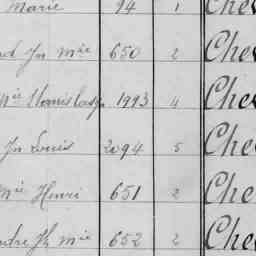 Marie 94 1 Che
Jn Mie 650 2 Che
Mie 1993 4 Che
Jn Louis 2094 5 Che
Mie Henri 651 2 Che
Jh Mie 652 2 Che